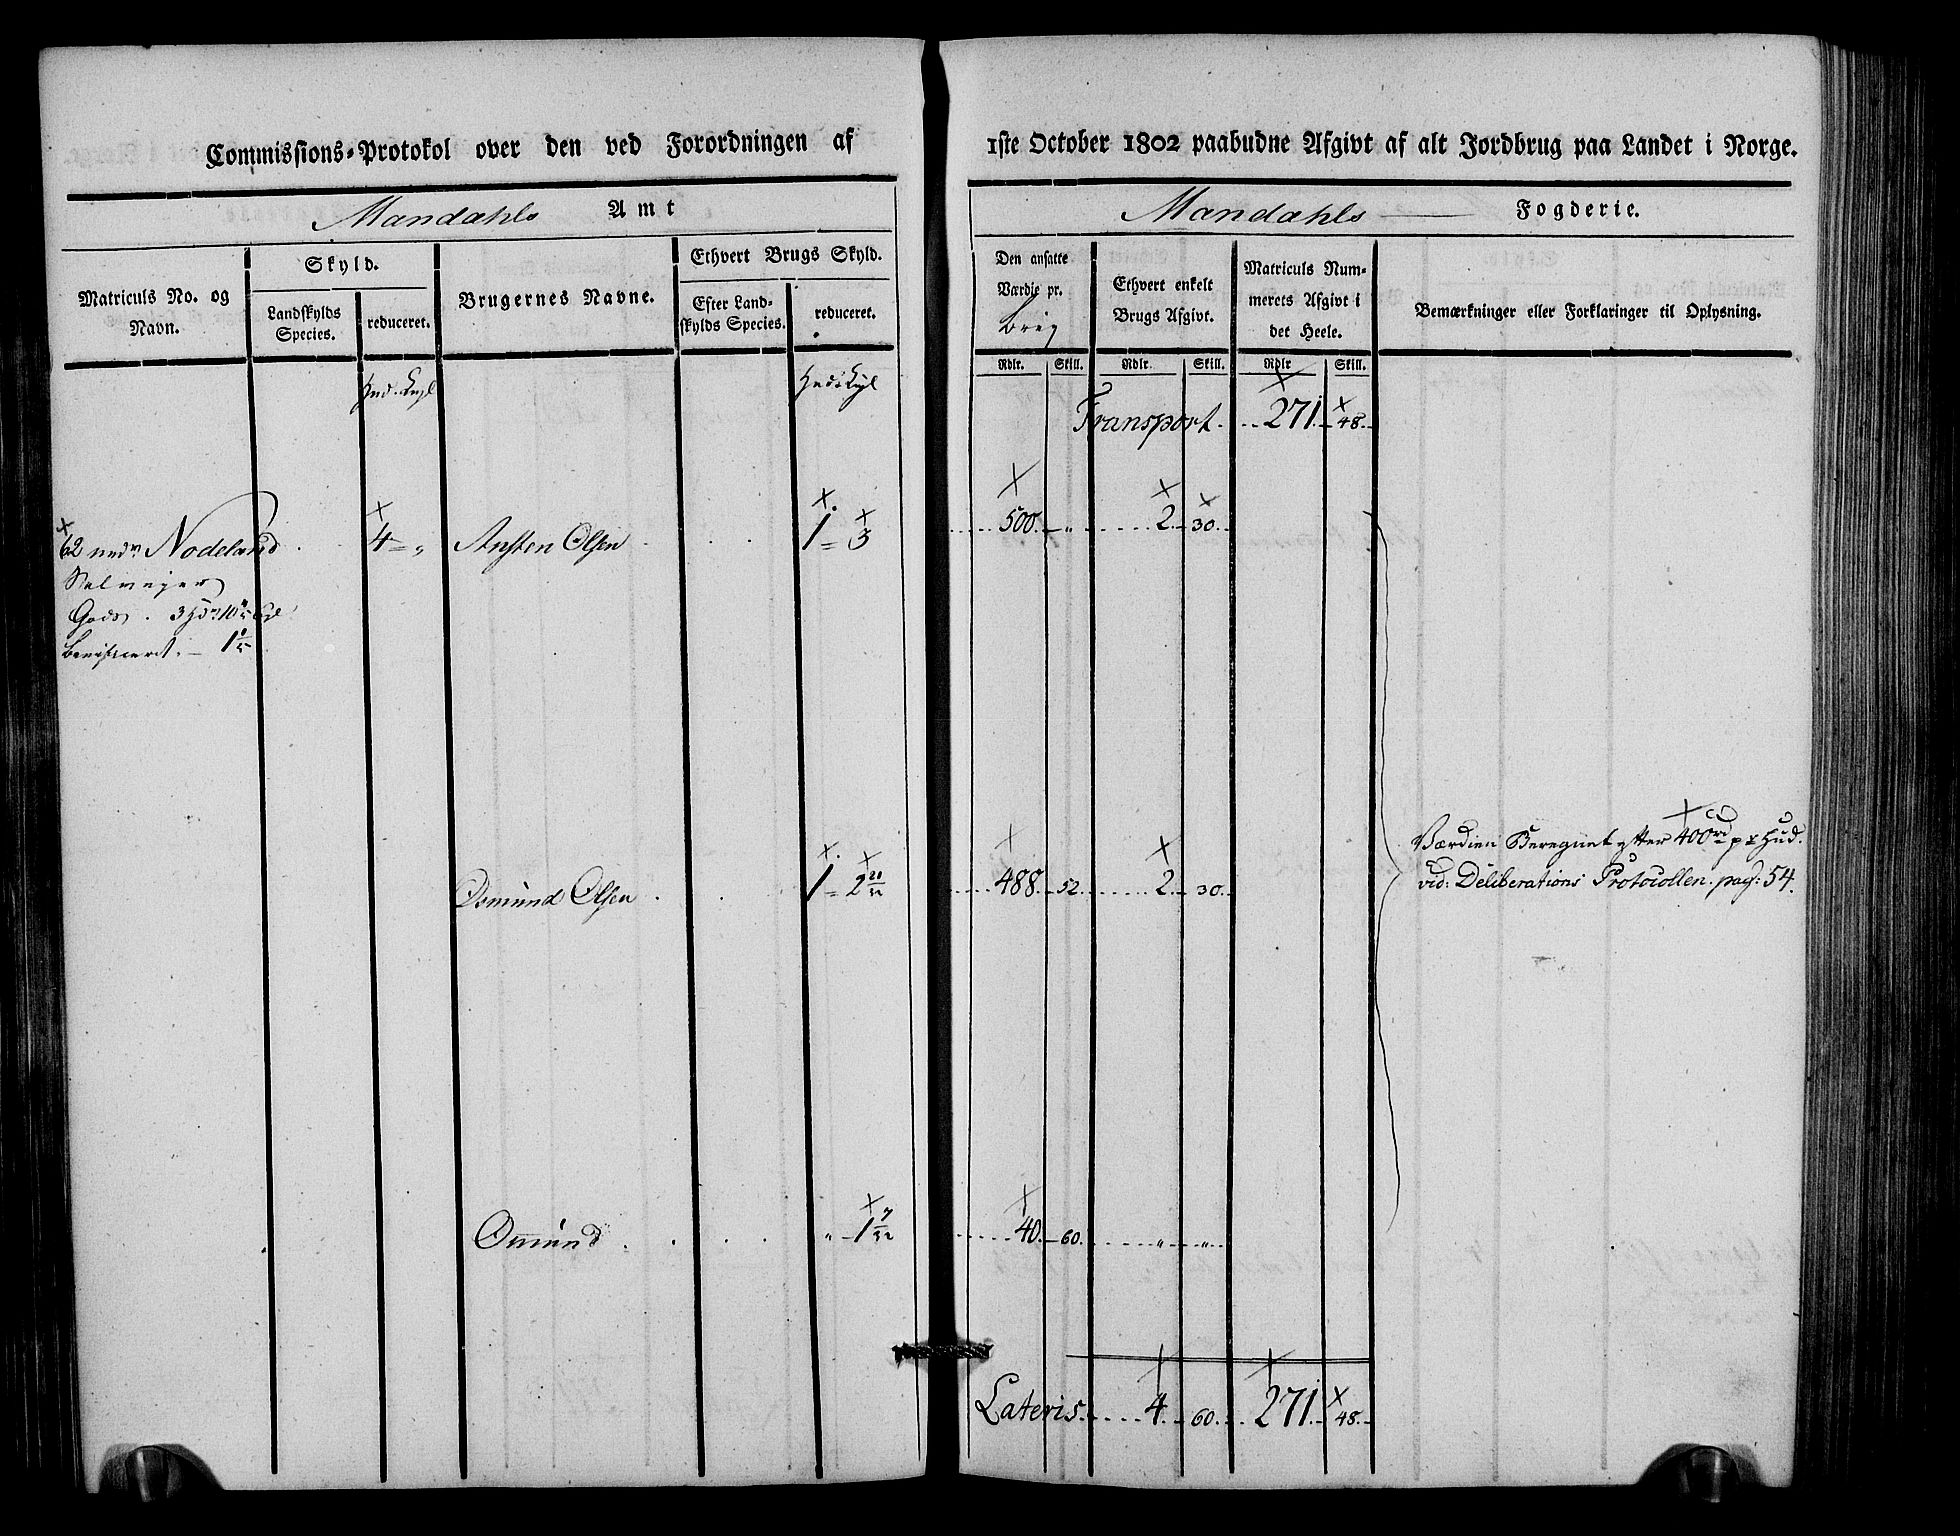 Commissions-Protokol over den ved Forordningen af
1ste October 1802 paabudne Afgivt af alt Jordbrug paa Landet i Norge.
Mandahls Amt
Mandahls Fogderie.
Matriculs No. og Navn.
Skyld.
Landskylds Species.
reduceret.
Brugernes Navne.
Ethvert Brugs Skyld.
Efter Landskylds Species.
reduceret.
Den ansatte Værdie pr. Brug
Ethvert enkelt Brugs Afgivt.
Matriculs Nummerets Afgivt i det Heele.
Bemærkninger eller Forklaringer til Oplysning.
Rdlr. Skill. Rdlr. Skill. Rdlr Skill.
Transport 271 48
62 nedr Nodeland 4 = „ Ansten Olsen 1 = 3 500 „ 2 30
Selvejer
Gods . 3
Beneficeret . 1
Værdien Beregnet efter 400 rd pr Hud.
Osmund Olsen 1 = 2 20/32 488 52 2 30
vid: Deliberations Protocollen pag: 54.
Omund „ 1 7/32 40 60 „ „
Lateris 4 60 271 48